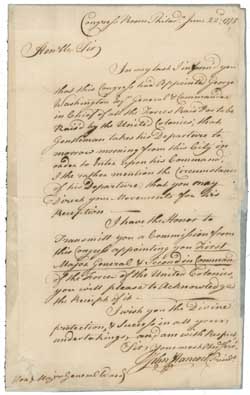 Congress Room Philad.ª June 22.d 1775
Hon.ble Sir,
In my last I inform'd you
that this Congress had Appointed George
Washington Esq.r General & Commander
in Chief of all the Forces Rais'd or to be
Raised by the United Colonies, that
Gentleman takes his Departure to
morrow morning from this City in
order to Enter upon his Command,
I the rather mention the Circumstance
of his Departure, that you may
Direct your Movements for his
Reception
I have the Honor to
Transmitt you a Commission from
this Congress appointing you First
Major General & Second in Command
of the Forces of the United Colonies,
you will please to Acknowledge
the Receipt of it.
I wish you the Divine
protection, & Success in all your
undertakings, and am with Respect
Sir, Your most Hum.l Serv.t
John Hancock Presid.t
Hon.l Major General Ward